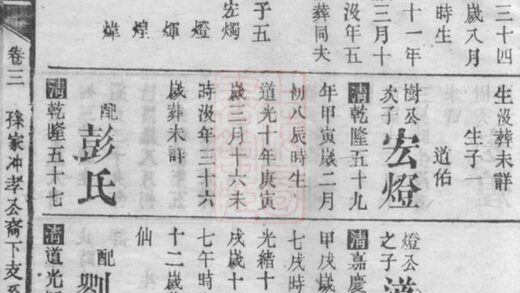 三十四
歲八月
時生
十一年
三月十
沒年五
葬同夫
于五
宏燭
燈
煇
煌
煒
生沒葬未詳
生子一
道佑
樹公次子
宏燈
清乾隆五十九
年甲寅歲二月
初八辰時生
道光十年庚寅
歲三月十六未
時沒年三十六
歲葬未詳
配彭氏
清乾隆五十七
燈公之子
清嘉慶
甲戌歲
七戌時
光緒十
戌歲十
七午時
十二歲
仙
配劉
清道光
卷三 孫家冲孝公裔下支系